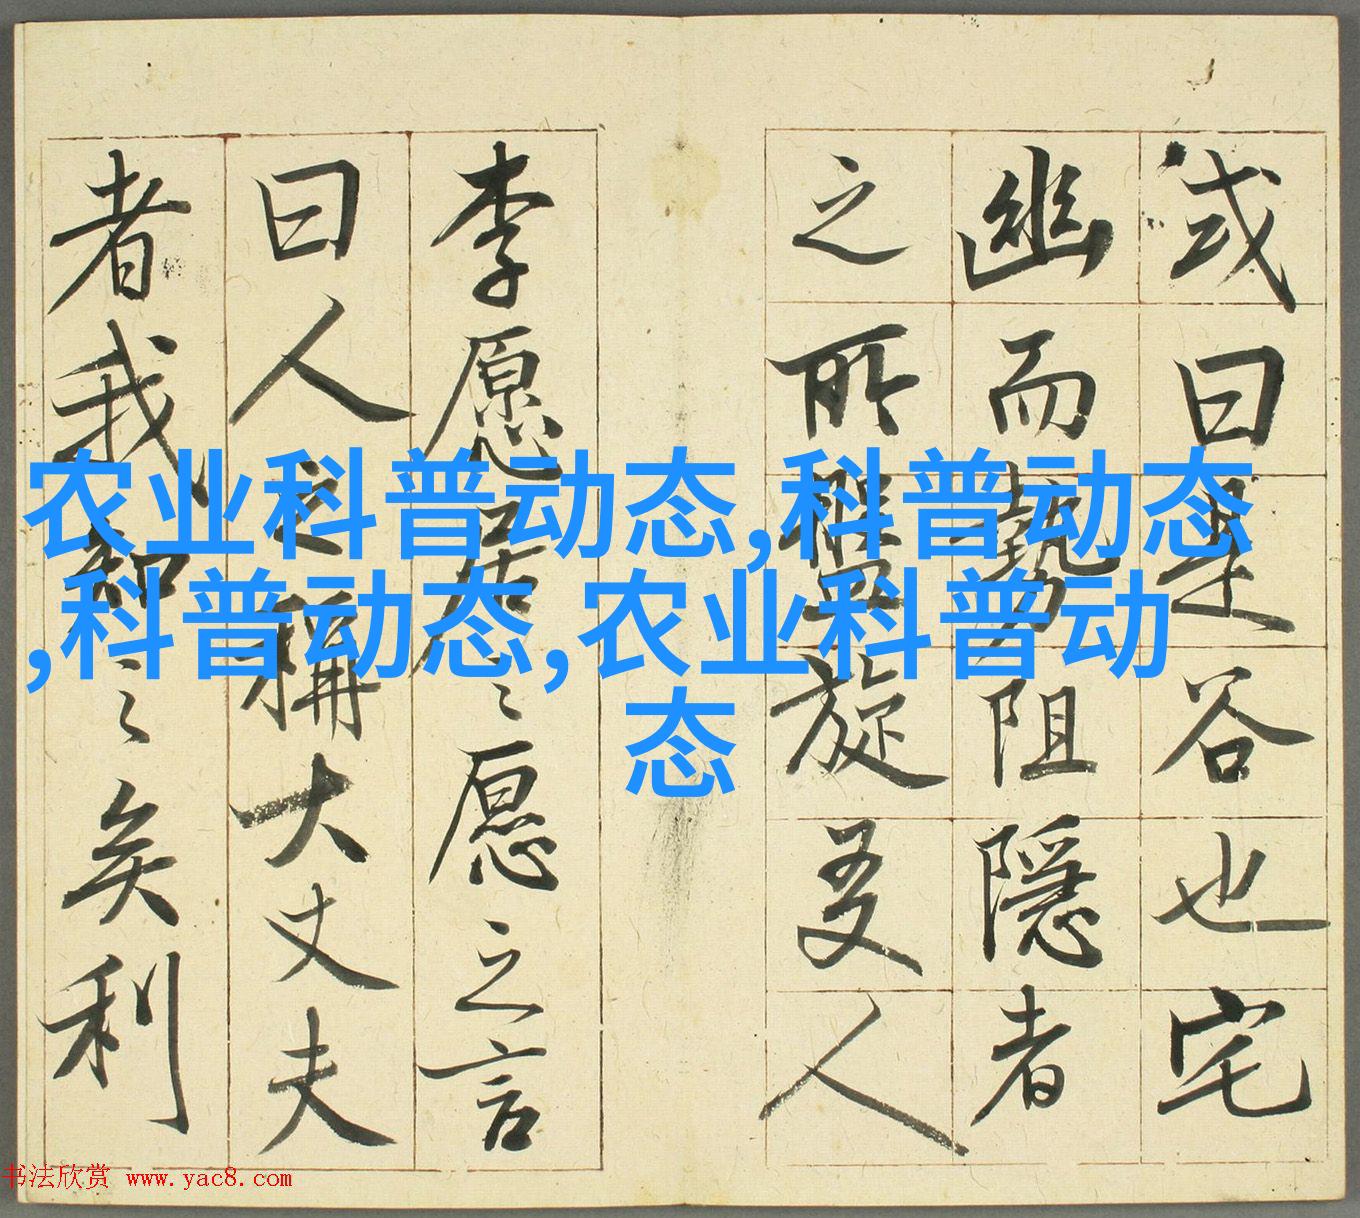 或曰是谷也宅
幽而勢阻隱者
之所盤旋友人
李愿居之愿之言
曰人之稱大丈夫
者我知之矣利
农业科普动态,科普动态
,科普动态,农业科普动
态
书法欣赏 www.yac8.com